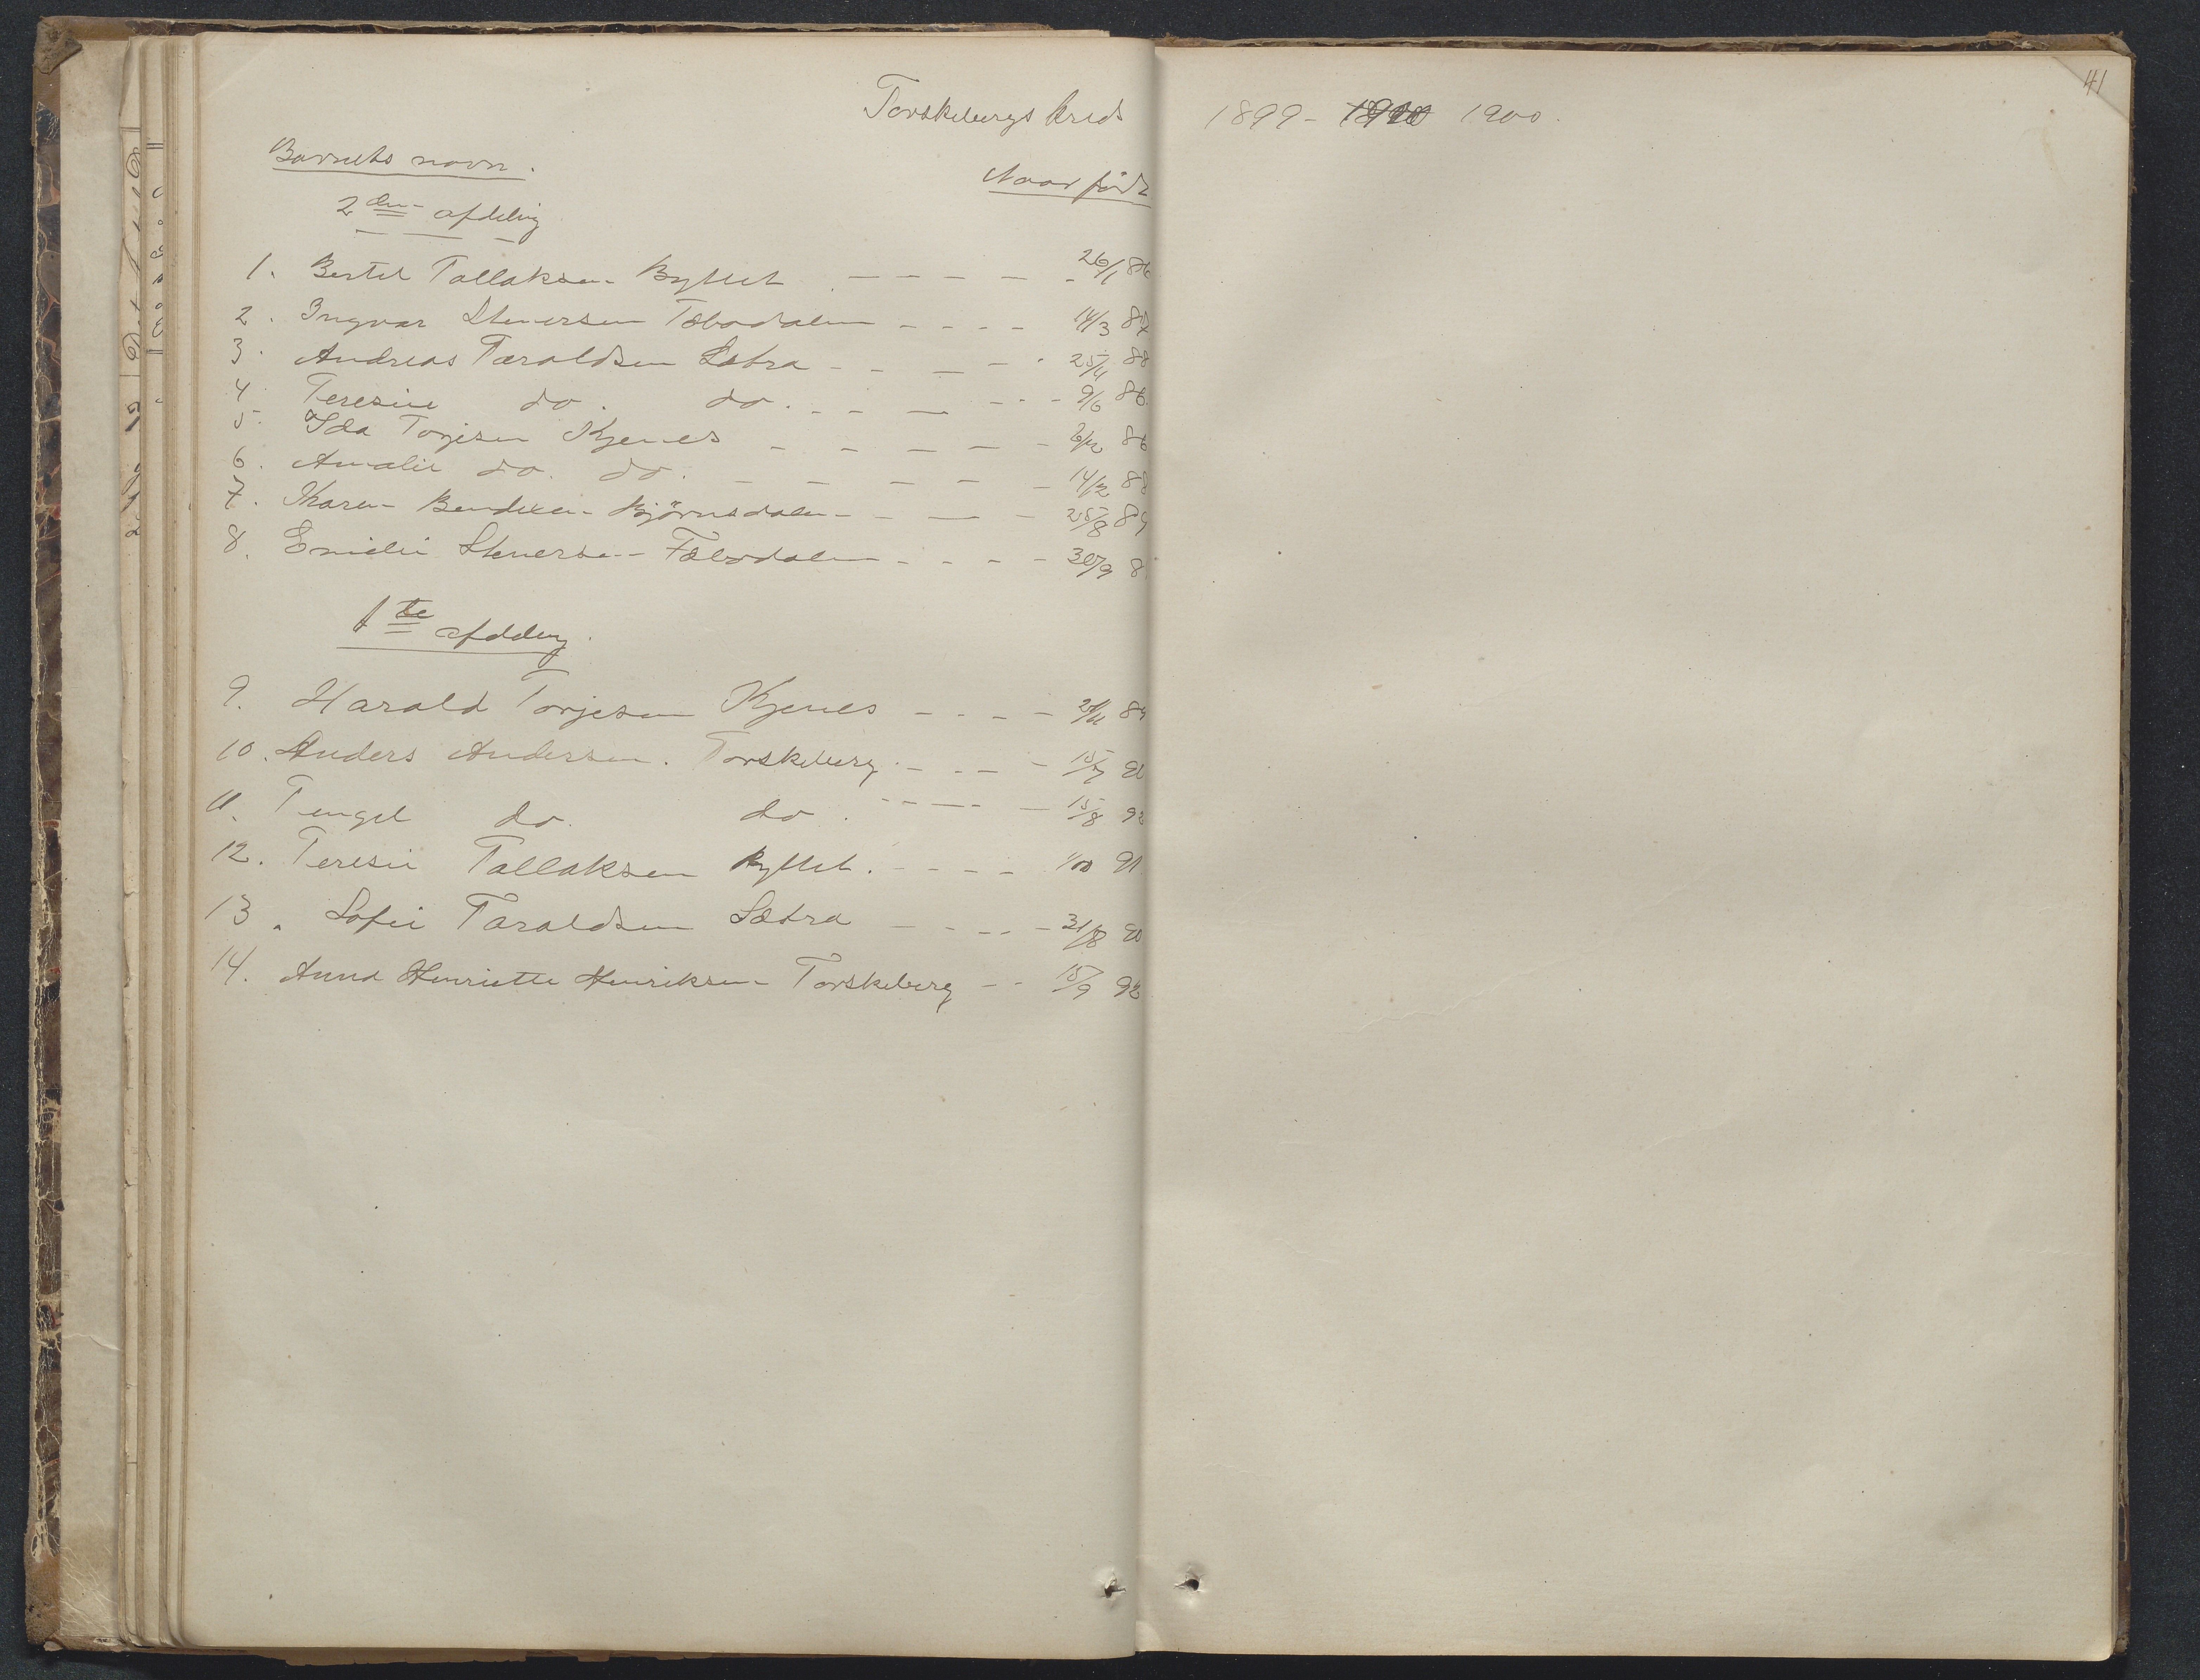 41
Torskebergs kreds 1899 - 1900.
Barnets navn. Naar født
2den afdeling
1. Bertel Tallaksen Byttet - - - - - 26/1 86
2. Ingvar Stenersen Tæbodalen - - - - 14/3 87
3. Andreas Taraldsen Sætra - - - - - 25/4 88
4. Teresine do. do. - - - - - - 9/6 86
5. Ida Torjesen Kjenes - - - - - 86
6. Amalie do. do. - - - - - - 14/2 88
7. Karen Bendixen Bjørnsdalen - - - - 25/8 89
8. Emilie Stenersen Tæbodalen - - - - 30/9 8
1te afdeling.
9. Harald Torjesen Kjenes - - - - 89
10. Anders Andersen. Torskeberg - - - - 15/7 90
11. Tengel do. do. - - - - - 15/8 92
12. Teresie Tallaksen Byttet. - - - - 1/10 91
13. Sofie Taraldsen Sætra - - - - - 31/8 90
14. Anna Henriette Henriksen Torskeberg - - 15/9 92